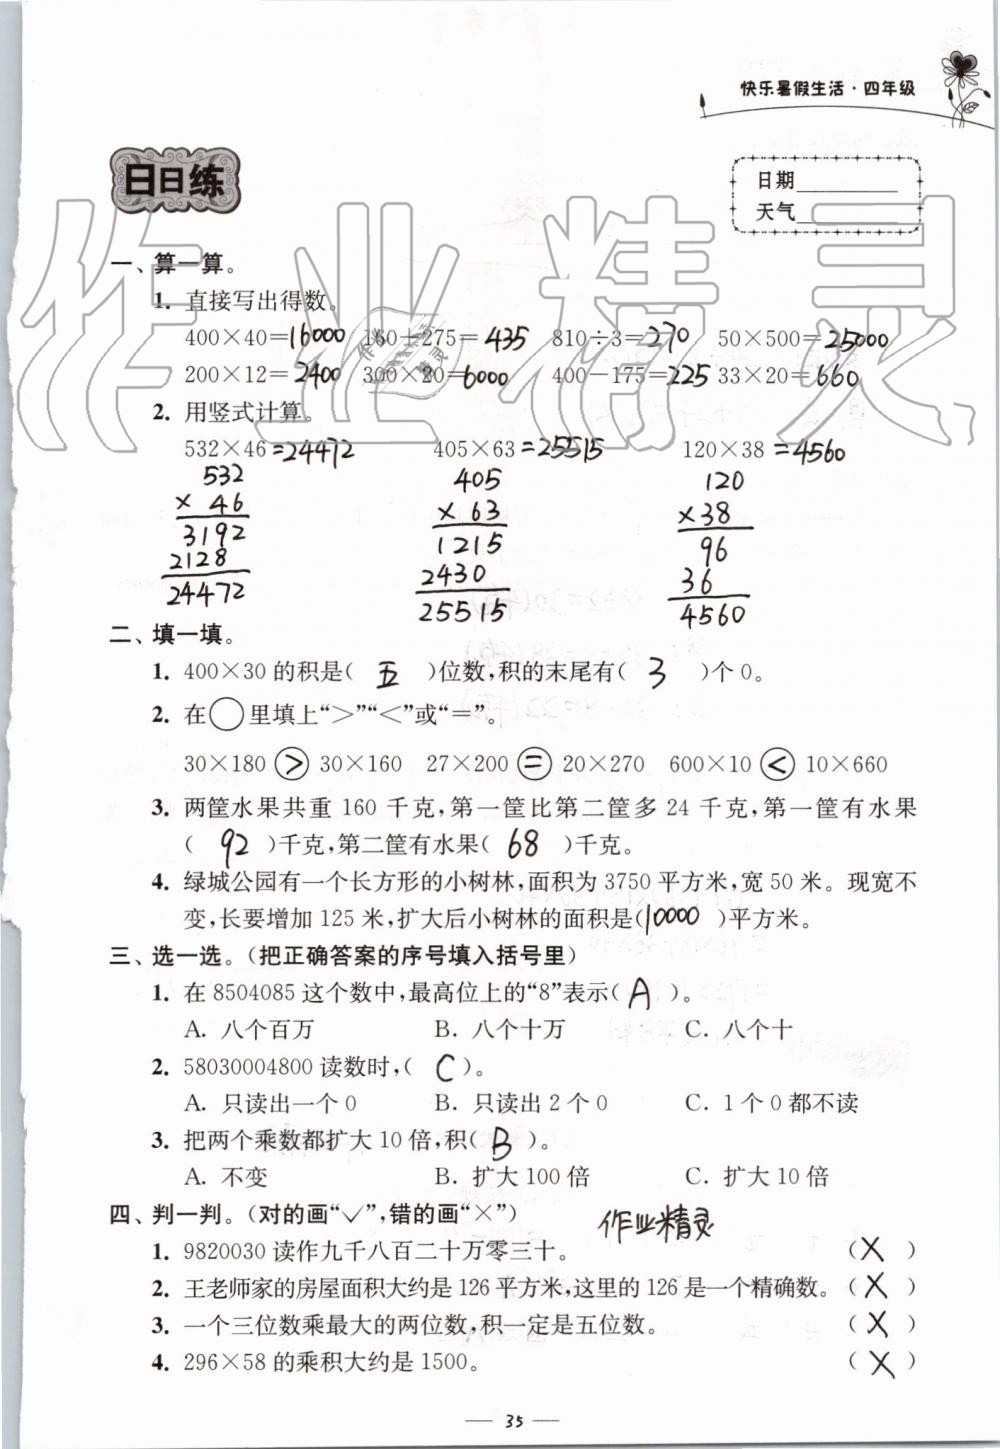 快乐暑假生活·四年级
日日练
日期
天气
一、算一算。
1. 直接写出得数。
400×40=16000 160+275=435 810÷3=270 50×500=25000
200×12=2400 300×20=6000 400-175=225 33×20=660
2. 用竖式计算。
532×46=24472 405×63=25515 120×38=4560
532 405 120
×46 ×63 ×38
3192 1215 96
2128 2430 36
24472 25515 4560
二、填一填。
1. 400×30的积是( 五 )位数,积的末尾有( 3 )个0。
2. 在○里填上“>”“<”或“=”。
30×180 > 30×160 27×200 = 20×270 600×10 < 10×660
3. 两筐水果共重160千克,第一筐比第二筐多24千克,第一筐有水果
( 92 )千克,第二筐有水果( 68 )千克。
4. 绿城公园有一个长方形的小树林,面积为3750平方米,宽50米。现宽不
变,长要增加125米,扩大后小树林的面积是(10000)平方米。
三、选一选。(把正确答案的序号填入括号里)
1. 在8504085这个数中,最高位上的“8”表示( A )。
A. 八个百万 B. 八个十万 C. 八个十
2. 58030004800读数时,( C )。
A. 只读出一个0 B. 只读出2个0 C. 1个0都不读
3. 把两个乘数都扩大10倍,积( B )。
A. 不变 B. 扩大100倍 C. 扩大10倍
四、判一判。(对的画“√”,错的画“×”)
作业精灵
1. 9820030读作九千八百二十万零三十。 (×)
2. 王老师家的房屋面积大约是126平方米,这里的126是一个精确数。(×)
3. 一个三位数乘最大的两位数,积一定是五位数。 (×)
4. 296×58的乘积大约是1500。 (×)
— 35 —
作业精灵